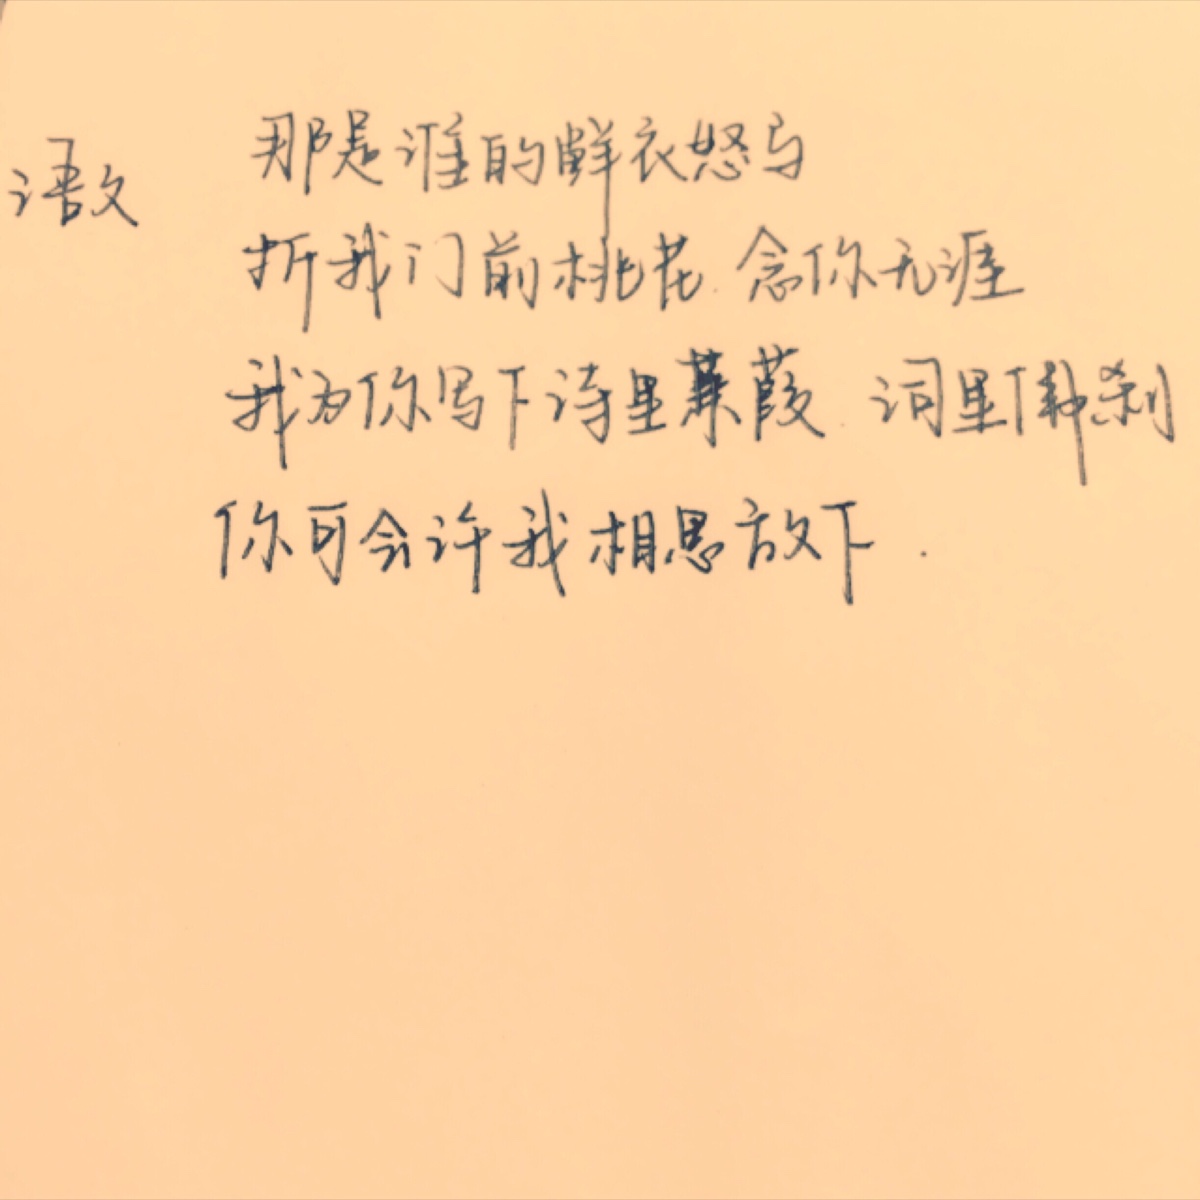 语文
那是谁的鲜衣怒马
折我门前桃花.念你无涯
我为你写下诗里蒹葭.词里传刹
你可会许我相思放下.